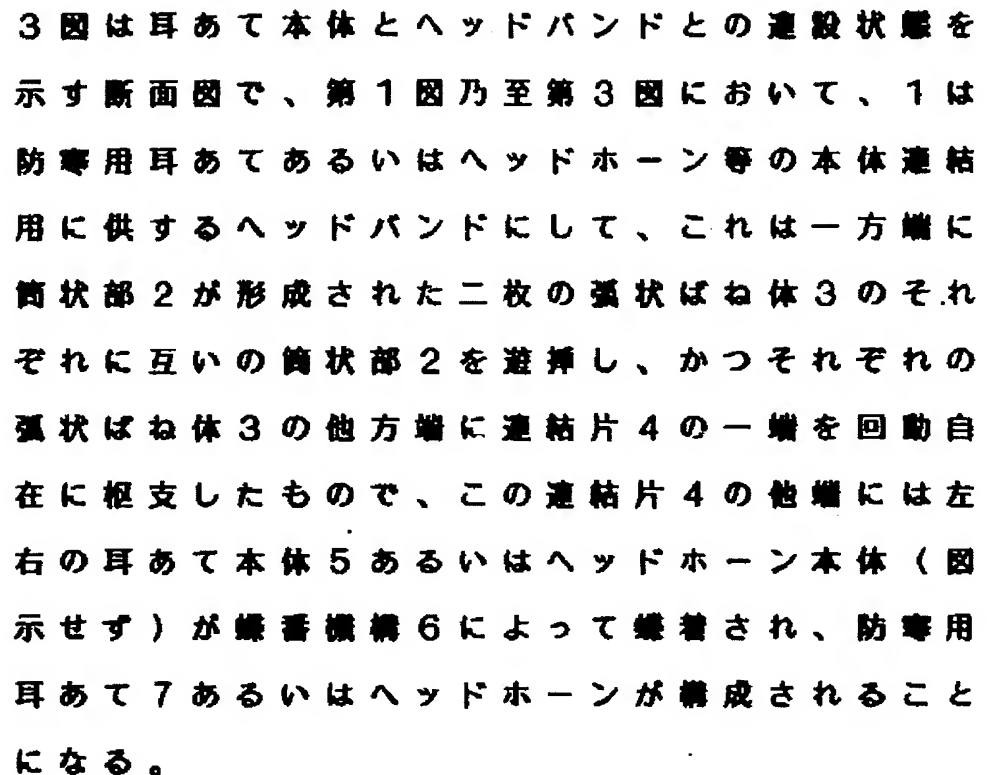 3図は耳あて本体とヘッドバンドとの連設状態を
示す断面図で、第1図乃至第3図において、1は
防寒用耳あてあるいはヘッドホーン等の本体連結
用に供するヘッドバンドにして、これは一方端に
筒状部2が形成された二枚の弧状ばね体3のそれ
ぞれに互いの筒状部2を遊挿し、かつそれぞれの
弧状ばね体3の他方端に連結片4の一端を回動自
在に枢支したもので、この連結片4の他端には左
右の耳あて本体5あるいはヘッドホーン本体(図
示せず)が蝶番機構6によって蝶着され、防寒用
耳あて7あるいはヘッドホーンが構成されること
になる。